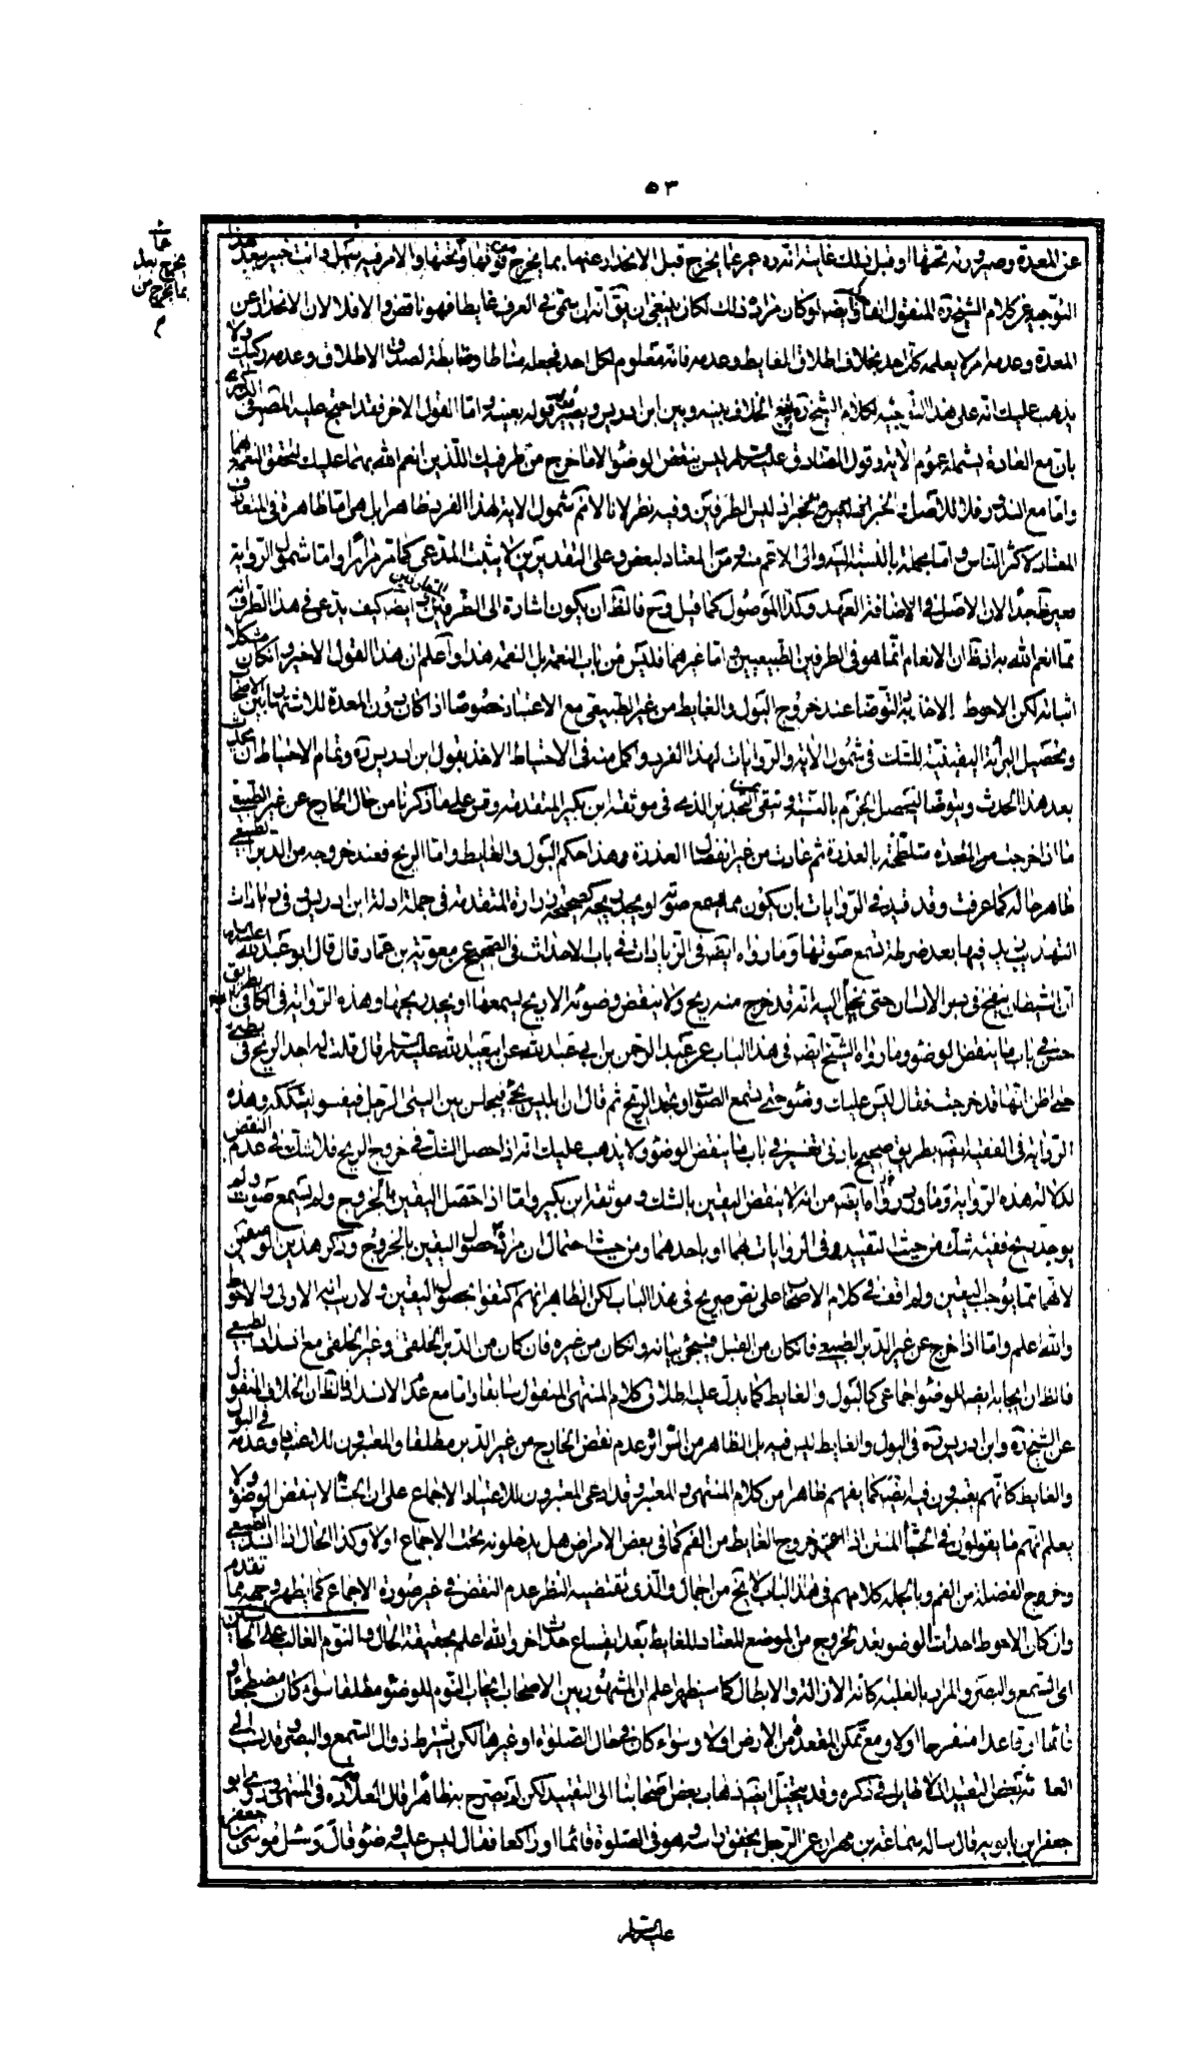 ٥٣
عن المعدة وصيرورته تحتها او قبل ذلك غايته انه ره عبر عما يخرج قبل الانحدار عنها بما يخرج من فوقها وتحتها والامر فيه سهل وانت خبير ببعد هذا
التوجيه عن كلام الشيخ ره المنقول انفا وايضا لو كان مراده ذلك لكان ينبغى ان يق انه ان سمى فى العرف غايطا فهو ناقض والا فلا لان الانحدار عن
المعدة وعدمه امر لا يعلمه كل احد بخلاف اطلاق الغايط وعدمه فانه معلوم لكل احد فجعله مناطا وضابطة لصدق الاطلاق وعدمه ركيك ولا
يذهب عليك انه على هذا التوجيه لكلام الشيخ ره يرتفع الخلاف بينه وبين ابن ادريس ويصير قوله بعينه واما القول الاخر فقد احتج عليه المصنف فى
بان مع العادة يشمله عموم الاية وقول الصادق عليه السلام ليس ينقض الوضوء الا ما خرج من طرفيك اللذين انعم الله بهما عليك لتحقق النعمة بهما
واما مع الندور فلا للاصل الطرفين وفيه نظر لانا لا نم شمول الاية لهذا الفرد ظاهرا بل هى اما ظاهرة فى المتعارف
المعتاد لاكثر الناس واما مجملة بالنسبة اليه والى الاعم منه ومن المعتاد لبعض وعلى التقديرين لا يثبت المدعى كما مر مرارا واما شمول الرواية
فغير ظ جدا لان الاصل فى الاضافة العهد وكذا الموصول كما قيل وح فالظ ان يكون اشارة الى الطرفين المتعارفين وايضا كيف يدعى فى هذا الطرف انه
مما انعم الله به اذ ظ ان الانعام انما هو فى الطرفين الطبيعيين واما غيرهما فليس من باب النعمة بل النقمة هذا واعلم ان هذا القول الاخير وان كان مشكلا
اثباته لكن الاحوط التوضأ عند خروج البول والغايط من غير الطبيعى مع الاعتياد خصوصا اذا كان من دون المعدة للاشتهار بين الاصحاب
وتحصيل البرائة اليقينية للشك فى شمول الاية والروايات لهذا الفرد واكمل منه فى الاحتياط الاخذ بقول ابن ادريس ره وتمام الاحتياط ان يحدث
بعد هذا الحدث ويتوضا ليحصل الجزم بالنية وتبقى فى موثقة ابن بكير المتقدمة وقس على ما ذكرنا من حال الخارج عن غير الطبيعى
ما اذا خرجت من المقعدة متلطخة بالعذرة ثم عادت من غير انفصال العذرة وهذا حكم البول والغايط واما الريح فعند خروجه من الدبر الطبيعى
ظاهر حاله كما عرفت وقد قيد فى الروايات بان يكون مما يسمع صوته او يجد ريحه كصحيحة زرارة المتقدمة فى جملة ادلة ابن ادريس وفى زيادات
التهذيب بدل فيها بعد ضرطة تسمع صوتها وما رواه ايضا فى الزيادات فى باب الاحداث فى الصحيح عن معوية بن عمار قال قال ابو عبد الله عليه السلام
ان الشيطان ينفخ فى دبر الانسان حتى يخيل اليه انه قد خرج منه ريح ولا ينقض وضوئه الا ريح يسمعها او يجد ريحها وهذه الرواية فى الكافى بطريق
حسن فى باب ما ينقض الوضوء وما رواه الشيخ ايضا فى هذا الباب عن عبد الرحمن بن ابى عبد الله عن ابيعبد الله عليه السلام قال قلت له اجد الريح فى بطنى
حتى اظن انها قد خرجت فقال ليس عليك وضوء حتى تسمع الصوت او تجد الريح ثم قال ان ابليس يجئ فيجلس بين اليتى الرجل فيفسو ليشككه وهذه
الرواية فى الفقيه ايضا بطريق صحيح بادنى تغيير فى باب ما ينقض الوضوء ولا يذهب عليك انه اذا حصل الشك فى خروج الريح فلا شك فى عدم النقض
لدلالة هذه الرواية وما ورد ايضا من انه لا ينقض اليقين بالشك وموثقة ابن بكير واما اذا حصل اليقين بالخروج ولم يسمع صوت ولم
يوجد ريح ففيه شك من حيث التقييد فى الروايات بهما او باحدهما ومن حيث احتمال ان مراده حصول اليقين بالخروج وذكر هذين الوصفين
لانهما مما يوجب اليقين ولم اقف فى كلام الاصحاب على نص صريح فى هذا الباب لكن الظاهر انهم اكتفوا بحصول اليقين ولا ريب انه الاولى والاحوط
والله اعلم واما اذا خرج عن غير الدبر الطبيعى فان كان من القبل فسيجئ بيانه وان كان من غيره فان كان من الدبر الخلقى وغير الخلقى مع انسداد الطبيعى
فالظ ان ايجابه ايضا للوضوء اجماعى كالبول والغايط كما يدل عليه اطلاق كلام المنتهى المنقول سابقا واما مع عدم الانسداد فالظ ان الخلاف المنقول
عن الشيخ ره وابن ادريس ره فى البول والغايط ليس فيه بل الظاهر من السرائر عدم نقض الخارج من غير الدبر مطلقا والمعتبرون للاعتياد وعدمه فى البول
والغايط كانهم يعتبرون فيه ايضا كما يفهم ظاهرا من كلام المنتهى والمعتبر وقد ادعى المعتبرون للاعتياد الاجماع على ان الجشأ لا ينقض الوضوء ولا
يعلم انهم ما يقولون فى الجشأ المنتن اذا اعتيد خروج الغايط من الفم كما فى بعض الامراض هل يدخلونه تحت الاجماع اولا وكذا الحال اذا انسد الطبيعى
وخروج الفضلة من الفم وبالجملة كلامهم فى هذا الباب لا يخ من اجمال والذى تقتضيه النظر عدم النقض فى غير صورة الاجماع كما يظهر وجهه مما تقدم
وان كان الاحوط احداث الوضوء بعد الخروج من الموضع المعتاد للغايط بعد ايقاع حدث اخر والله اعلم بحقيقة الحال والنوم الغالب على الحاستين
اى السمع والبصر والمراد بالغلبة كانه الازالة والابطال كما سيظهر اعلم ان المشهور بين الاصحاب ايجاب النوم للوضوء مطلقا سواء كان مضطجعا او
قائما او قاعدا منفرجا اولا ومع تمكن المقعدة من الارض اولا وسواء كان فى حال الصلوة او غيرها لكن يشترط زوال السمع والبصر وقد نسب الى
العامة بعض التقييد لا طائل فى ذكره وقد يتخيل ايضا ذهاب بعض اصحابنا الى التقييد لكن لم يصرح به ظاهرا قال العلامة ره فى المنتهى روى ابو
جعفر ابن بابويه قال ساله سماعة بن مهران عن الرجل يخفق راسه وهو فى الصلوة قائما او راكعا فقال ليس عليه وضوء قال وسئل موسى بن جعفر
عليه السلام